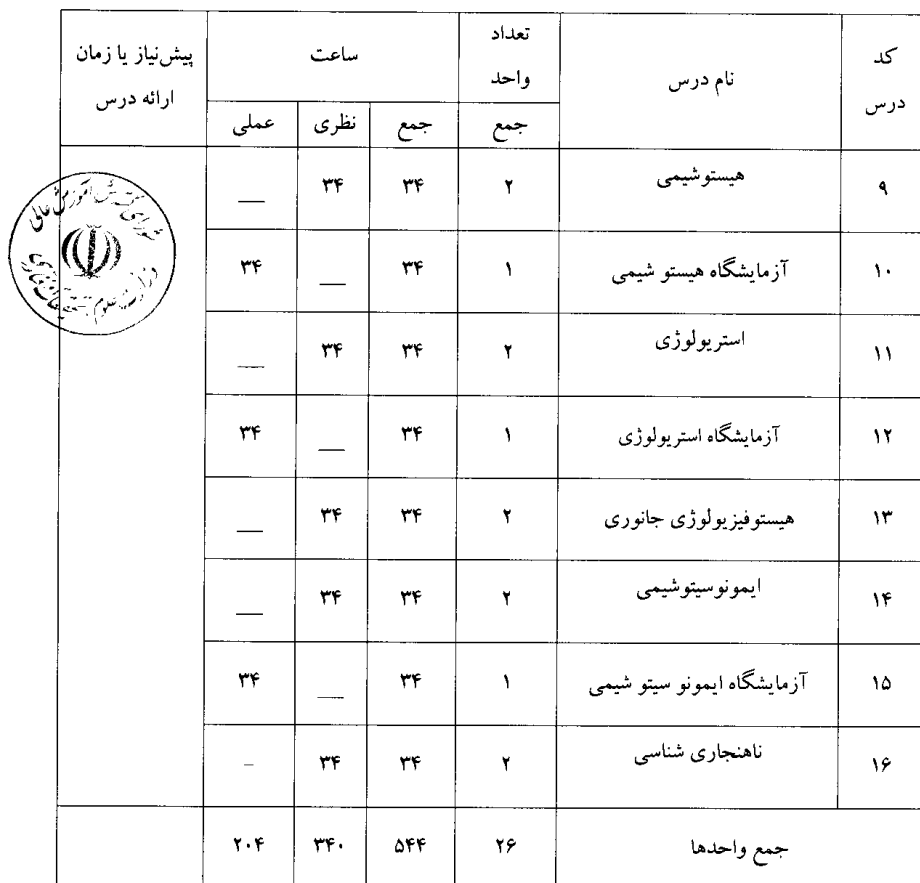 کد درس | نام درس | تعداد واحد | ساعت | پیش‌نیاز یا زمان ارائه درس
جمع | جمع | نظری | عملی
۹ | هیستوشیمی | ۲ | ۳۴ | ۳۴ | __
۱۰ | آزمایشگاه هیستو شیمی | ۱ | ۳۴ | __ | ۳۴
۱۱ | استریولوژی | ۲ | ۳۴ | ۳۴ | __
۱۲ | آزمایشگاه استریولوژی | ۱ | ۳۴ | __ | ۳۴
۱۳ | هیستوفیزیولوژی جانوری | ۲ | ۳۴ | ۳۴ | __
۱۴ | ایمونوسیتوشیمی | ۲ | ۳۴ | ۳۴ | __
۱۵ | آزمایشگاه ایمونو سیتو شیمی | ۱ | ۳۴ | __ | ۳۴
۱۶ | ناهنجاری شناسی | ۲ | ۳۴ | ۳۴ | –
جمع واحدها | ۲۶ | ۵۴۴ | ۳۴۰ | ۲۰۴
شورای گسترش آموزش عالی
وزارت علوم